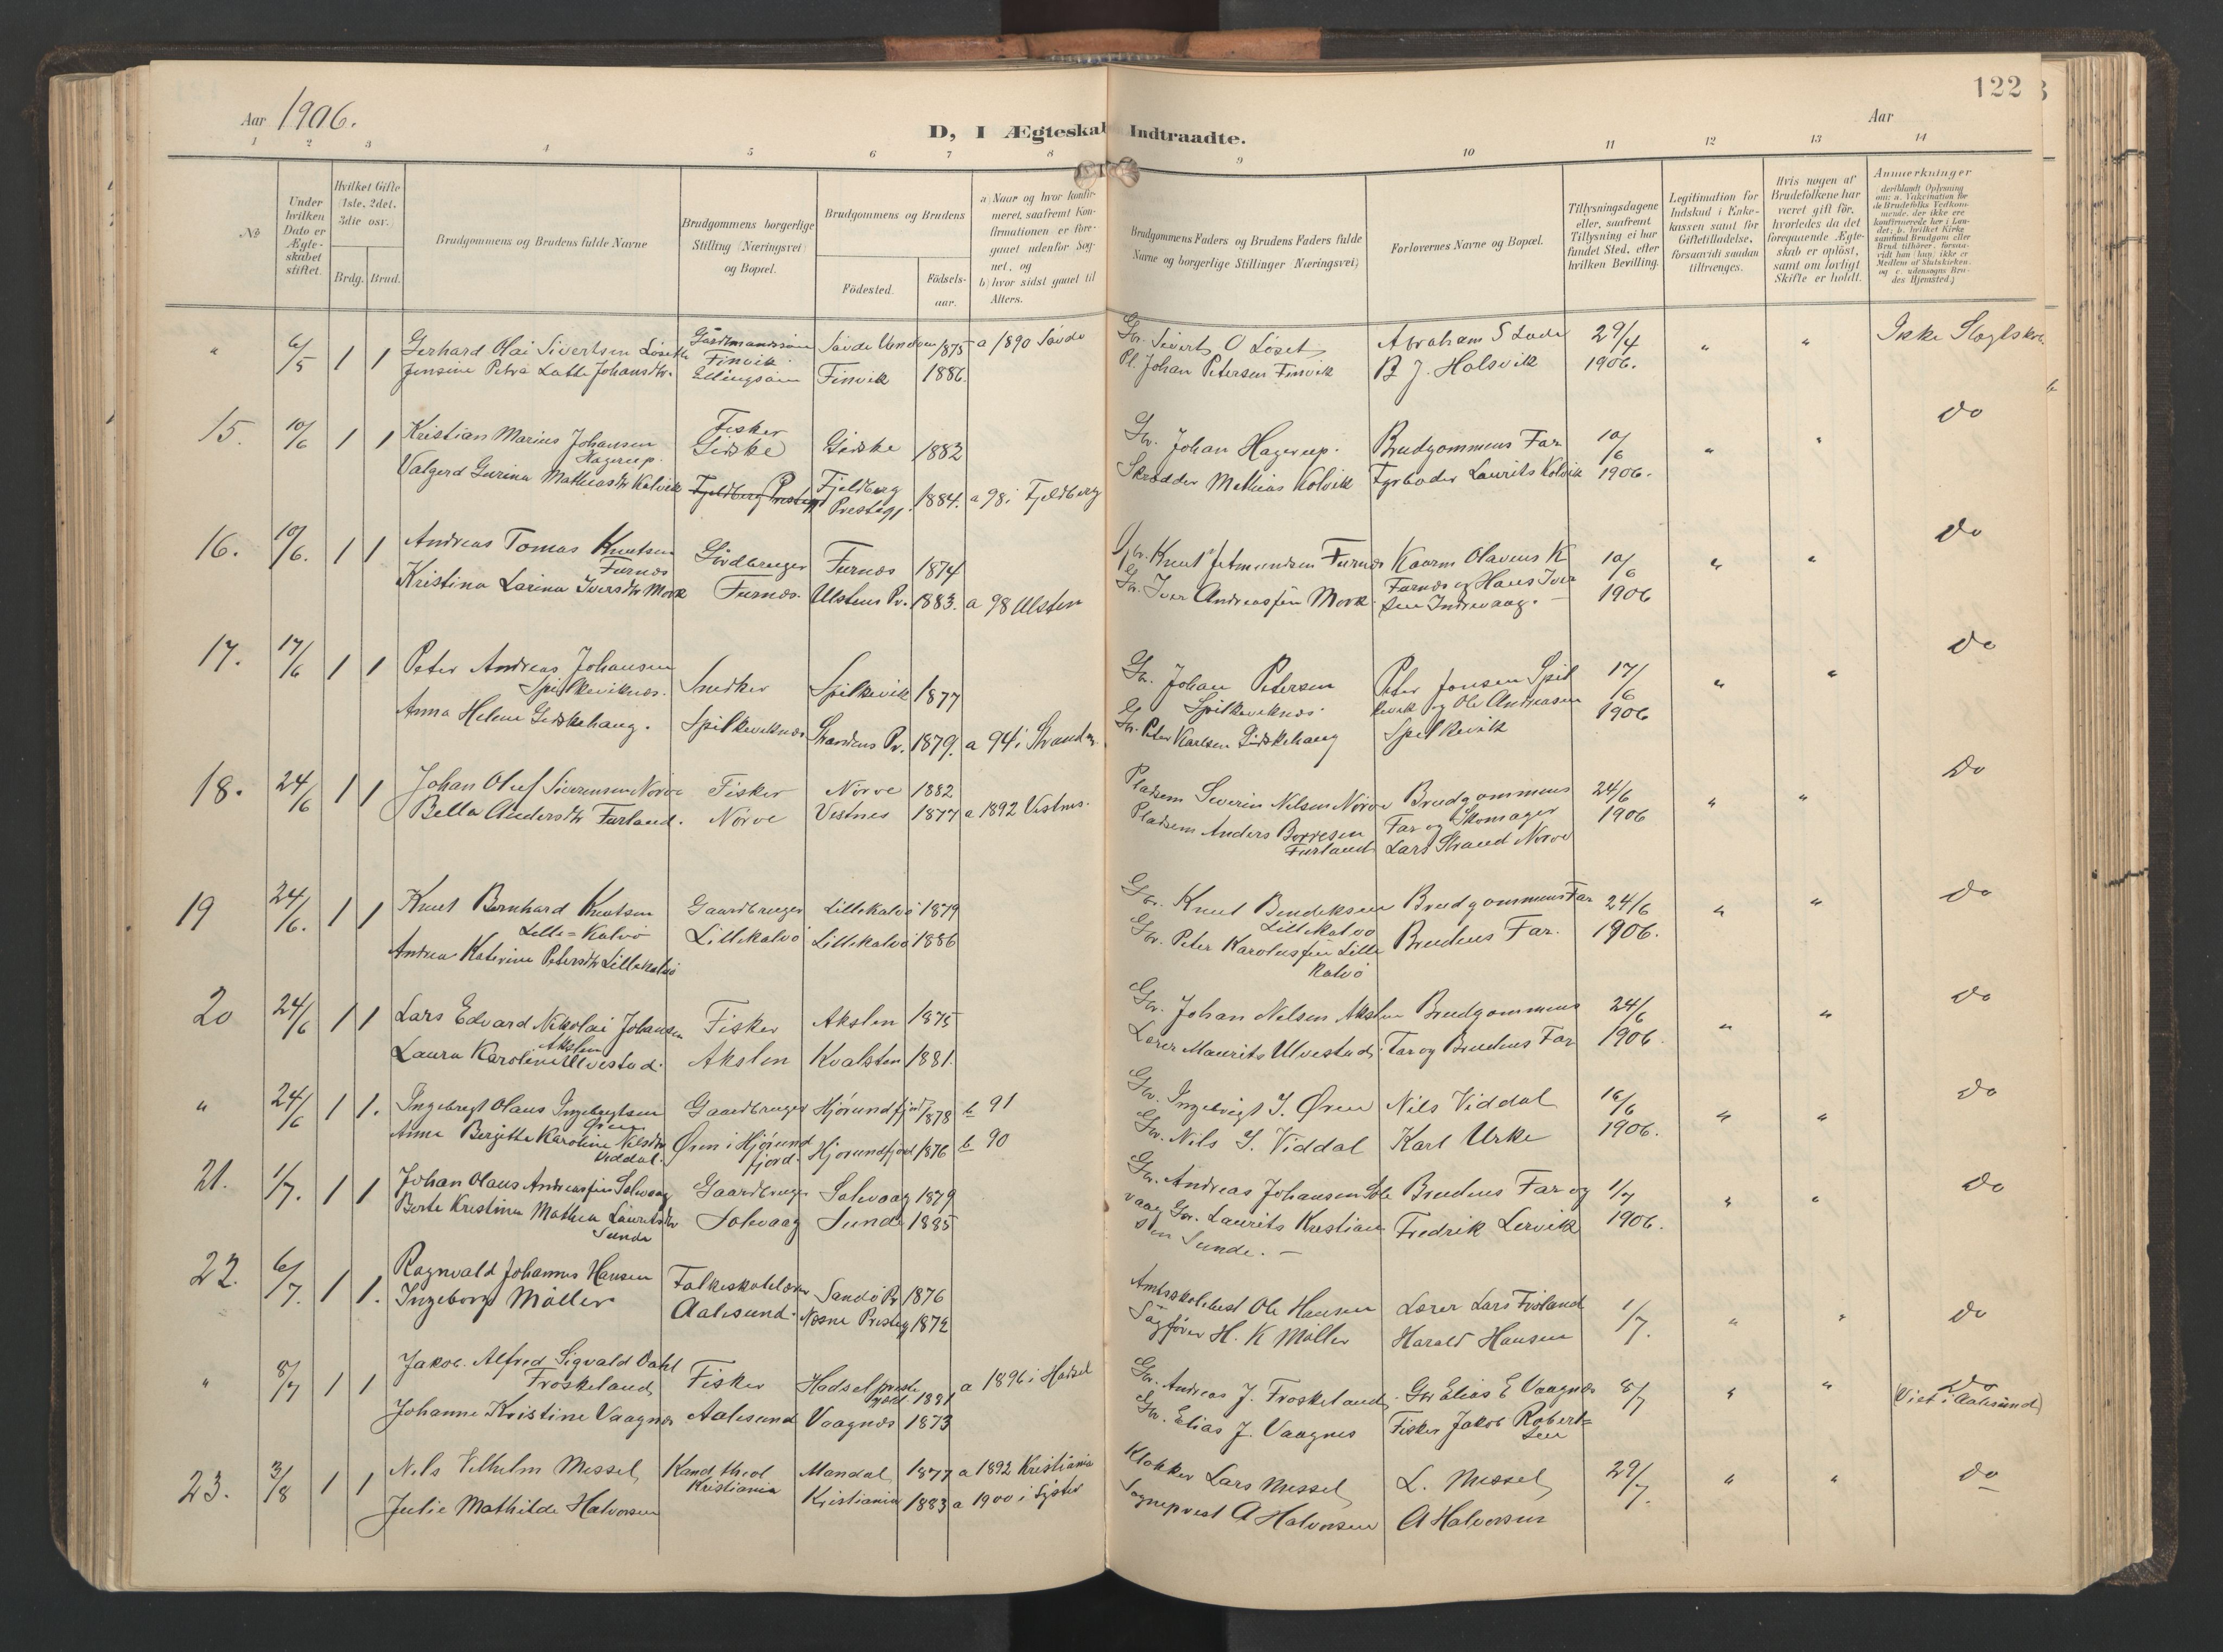 122
Aar 1906.
D, I Ægteskab Indtraadte.
Aar
1 2 3 4 5 6 7 8 9 10 11 12 13 14
No
Under hvilken Dato er Ægteskabet stiftet.
Hvilket Gifte (1ste, 2det, 3die osv.)
Brdg. Brud.
Brudgommens og Brudens fulde Navne
Brudgommens borgerlige Stilling (Næringsvei) og Bopæl.
Brudgommens og Brudens
Födested.
Födsels-aar.
a) Naar og hvor konfirmeret, saafremt Konfirmationen er foregaaet udenfor Sognet, og
b) hvor sidst gaaet til Alters.
Brudgommens Faders og Brudens Faders fulde Navne og borgerlige Stillinger (Næringsvei)
Forlovernes Navne og Bopæl.
Tillysningsdagene eller, saafremt Tillysning ei har fundet Sted, efter hvilken Bevilling.
Legitimation for Indskud i Enkekassen samt for Giftetilladelse, forsaavidt saadan tiltrænges.
Hvis nogen af Brudefolkene har været gift för, hvorledes da det foregaaende Ægteskab er oplöst, samt om lovligt Skifte er holdt.
Anmerkninger
" 6/5 1 1 Gerhard Olai Sivertsen Løseth Gårdmandssøn Søvde 1875 a 1890 Søvde Gbr. Sivert O Løset Abraham S Lade 29/4 " " Ikke Slægtskab
Jensine Petra Lotte Johansdtr. Finvik Ellingsöen Finvik 1886. Pl. Johan Petersen Finvik B J. Holsvik 1906.
15. 10/6 1 1 Kristian Marius Johansen Hagerup. Fisker Giske Giske 1882 Gbr. Johan Hagerup. Brudgommens Far 10/6 " " Do
Valgerd Gurina Mathiasdtr Kolvik Fjeldberg Prestegj. 1884. a 98 i Fjeldberg Skrædder Mathias Kolvik Fyrbøder Laurits Kolvik 1906.
16. 10/6. 1 1 Andreas Tomas Knutsen Furnes Gårdbruger Furnes 1874 Gbr. Knut Furnes Kaarm Olavius K 10/6 " " Do
Kristina Larina Iversdtr Mork Furnes. Ulstens Pr. 1883. a 98 Ulsten Gbr. Iver Andreassen Mork. Furnes og Hans Iversen Indrevaag. 1906
17. 17/6 1 1 Peter Andreas Johansen Spilkeviknes. Snedker Spilkevik 1877 Gbr. Johan Petersen Spilkeviknes. Peter Jonsen Spilkevik og Ole Andreasen Spilkevik 17/6 " " Do
Anna Helene Giskehaug. Spilkeviknes Strandens Pr. 1879. a 94 i Stranden. Gbr. Peter Karlsen Giskehaug 1906
18. 24/6 1 1 Johan Oluf Severinsen Nørve Fisker Nørve 1882 Pladsem Severin Nilsen Nörve Brudgommens 24/6 " " Do
Bella Andersdtr Furland. Nörve Vestnes 1877 a 1892 Vestnes. Pladsem Anders Børresen Furland Far og Skomager Lars Strand Nörve 1906
19 24/6. 1 1 Knut Bernhard Knutsen Lille=Kalvö Gaardbruger Lillekalvö 1879 Gbr. Knut Bendiksen Lillekalvø Brudgommens Far 24/6 " " Do
Andrea Katerine Petersdtr Lillekalvö Lillekalvö Lillekalvö 1886 Gbr. Peter Karolussen Lille Kalvö Brudens Far. 1906.
20 24/6 1 1 Lars Edvard Nikolai Johansen Akslen Fisker Akslen 1875 Gbr. Johan Nilsen Akslen Brudgommens 24/6 " " Do
Laura Karoline Ulvestad. Akslen Kvalsten 1881. Lærer Maurits Ulvestad. Far og Brudens Far 1906.
" 24/6 1 1. Ingebrigt Olaus Ingebrigtsen Øren Gaardbruger Hjörundfjord 1878 b 91 Gbr. Ingebrigt I. Øren Nils Viddal 16/6 " " Do
Anna Bergitte Karoline Nilsdtr Viddal. Øren i Hjörundfjord. Hjorundfjord 1876 b 90 Gbr. Nils I. Viddal Karl Urke 1906.
21. 1/7. 1 1 Johan Olaus Andreassen Solevaag Gaardbruger Solevaag 1879 Gbr. Andreas Johansen Solevaag Brudens Far og 1/7 " " Do
Berte Kristine Mathea Lauritsdtr Sunde Solevaag Sunde 1885 Gbr. Laurits Kristiansen Sunde. Fredrik Lervik 1906.
22. 6/7. 1 1. Ragnvald Johannes Hansen Folkeskolelærer Sandö Pr 1876 Amtsskolebest. Ole Hansen Lærer Lars Frøland 1/7. " " Do
Ingeborg Møller Aalesund. Nesne Prestegj 1872 Sagfører H. K Møller Harald Hansen
" 8/7 1 1 Jakob. Alfred Sigvald Dahl Froskeland Fisker Hadsel prestegjeld 1881 a 1896 i Hadsel Gbr. Andreas J. Froskeland. Gbr Elias E Vaagnes 8/7 " " Do (Viet i Aalesund)
Johanne Kristine Vaagnes Aalesund Vaagnes 1873 Gbr. Elias J. Vaagnes Fisker Jakob Robertsen
23. 3/8 1 1 Nils Vilhelm Messel Kand. theol Kristiania Mandal 1877 a 1892 Kristiania Klokker Lars Messel L. Messel 29/7. " " Do
Julie Mathilde Halvorsen Kristiania 1883 a 1900 i Lyster Sogneprest A Halvorsen A Halvorsen